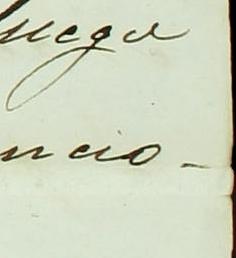 luego
ncio-